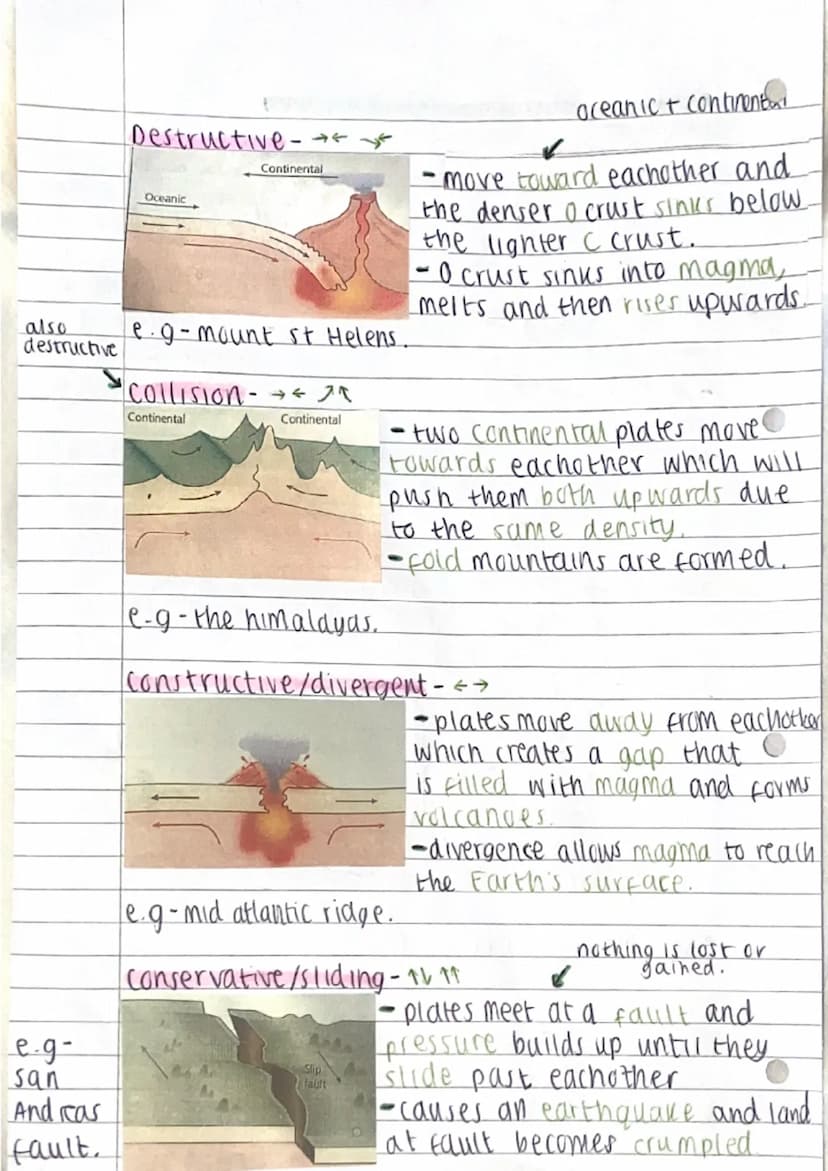 oceanic + continental
Destructive - →← ↘↙
Continental
Oceanic
- move toward eachother and
the denser O crust sinks below
the lighter C crust.
- O crust sinks into magma,
melts and then rises upwards.
e.g - mount st Helens.
also
destructive
Collision - →← ↗↖
Continental Continental
- two continental plates move
towards eachother which will
push them both upwards due
to the same density.
- fold mountains are formed.
e.g - the himalayas.
constructive/divergent - ←→
- plates move away from eachother
which creates a gap that
is filled with magma and forms
volcanoes.
- divergence allows magma to reach
the Earth's surface.
e.g - mid atlantic ridge.
nothing is lost or
gained.
conservative/sliding - ↑↓ ↑↑
- plates meet at a fault and
pressure builds up until they
slide past eachother
- causes an earthquake and land
at fault becomes crumpled
Slip
fault
e.g -
san
Andreas
fault.